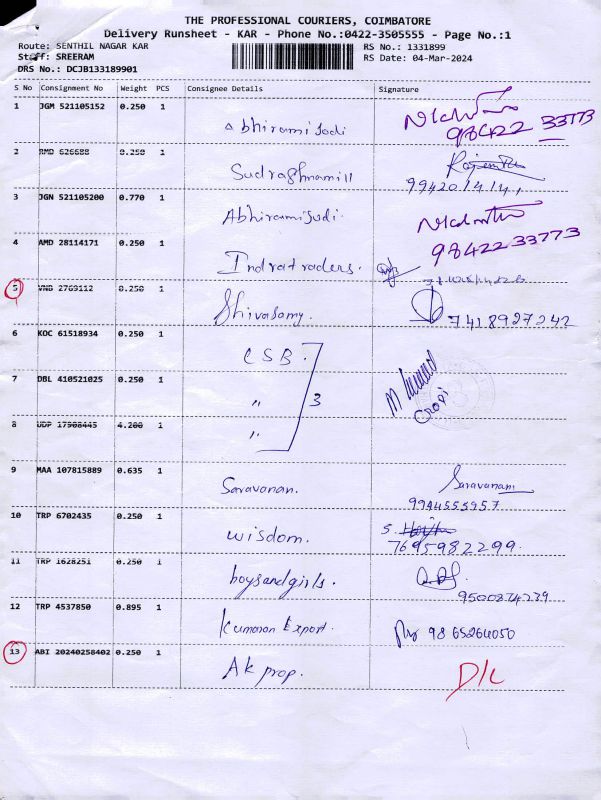 THE PROFESSIONAL COURIERS, COIMBATORE
Delivery Runsheet - KAR - Phone No.:0422-3505555 - Page No.:1
Route: SENTHIL NAGAR KAR RS No.: 1331899
Staff: SREERAM RS Date: 04-Mar-2024
DRS No.: DCJB133189901
S No Consignment No Weight PCS Consignee Details Signature
1 JGM 521105152 0.250 1
Abhirami Jodi
98422 33773
2 RMD 626688 0.250 1
3 JGN 521105200 0.770 1
Abhiramijodi.
98422 33773
4 AMD 28114171 0.250 1
Indratraders.
5 VNB 2769112 0.250 1
Shivasamy. 7418927242
6 KOC 61518934 0.250 1
CSB.
7 DBL 410521025 0.250 1
" 3
8 UDP 17908445 4.200 1
"
9 MAA 107815889 0.635 1
Saravanan. Saravanan
9944555957
10 TRP 6702435 0.250 1
wisdom. 7695982299.
11 TRP 1628251 0.250 1
boysandgirls.
9500874239
12 TRP 4537850 0.895 1
Kumaran Export. 98 65264050
13 ABI 20240258402 0.250 1
Ak prop. D/L